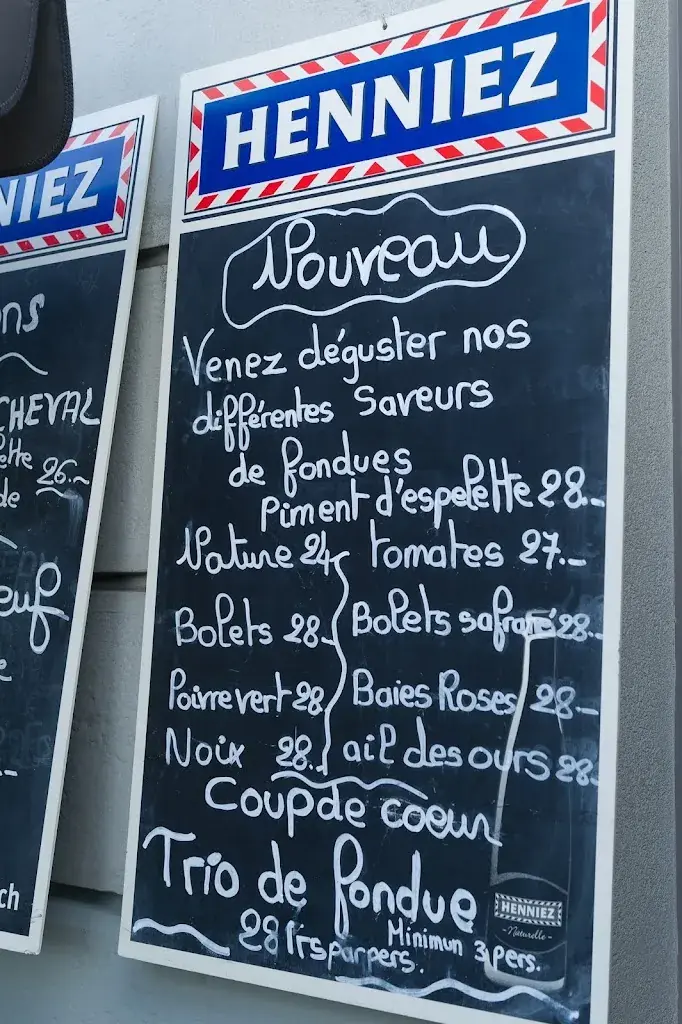 HENNIEZ
Nouveau
Venez déguster nos
différentes saveurs
de fondues
Piment d'espelette 28.-
Nature 24.- tomates 27.-
Bolets 28.- Bolets safrané 28.-
Poivre vert 28.- Baies Roses 28.-
Noix 28.- ail des ours 28.-
Coup de coeur
Trio de fondue
28 frs par pers. Minimun 3 pers.
HENNIEZ
- Naturelle -
NIEZ
ons
CHEVAL
26.-
de
euf